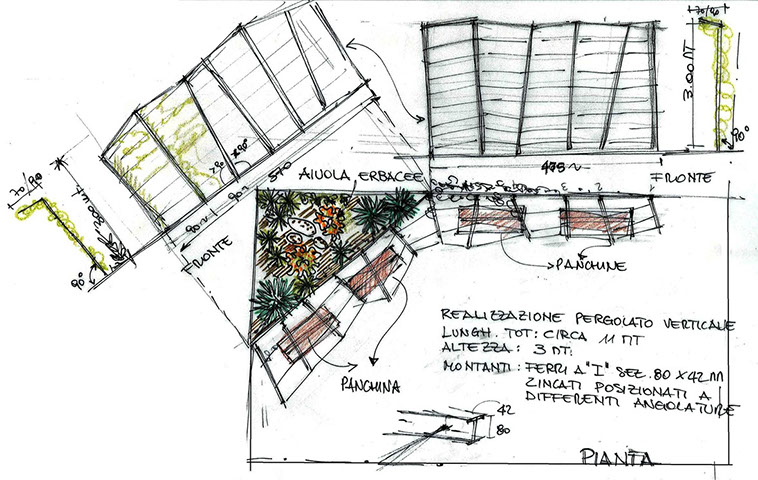 70/90
70/90
3.00 MT
90°
90°
570
90
90
AIUOLA ERBACEE
475
FRONTE
FRONTE
70/90
90°
3 2 1
PANCHINE
PANCHINA
REALIZZAZIONE PERGOLATO VERTICALE
LUNGH. TOT: CIRCA 11 MT
ALTEZZA: 3 MT:
MONTANTI: FERRI A "I" SEZ. 80 X 42 MM
ZINCATI POSIZIONATI A
DIFFERENTI ANGOLATURE
42
80
PIANTA